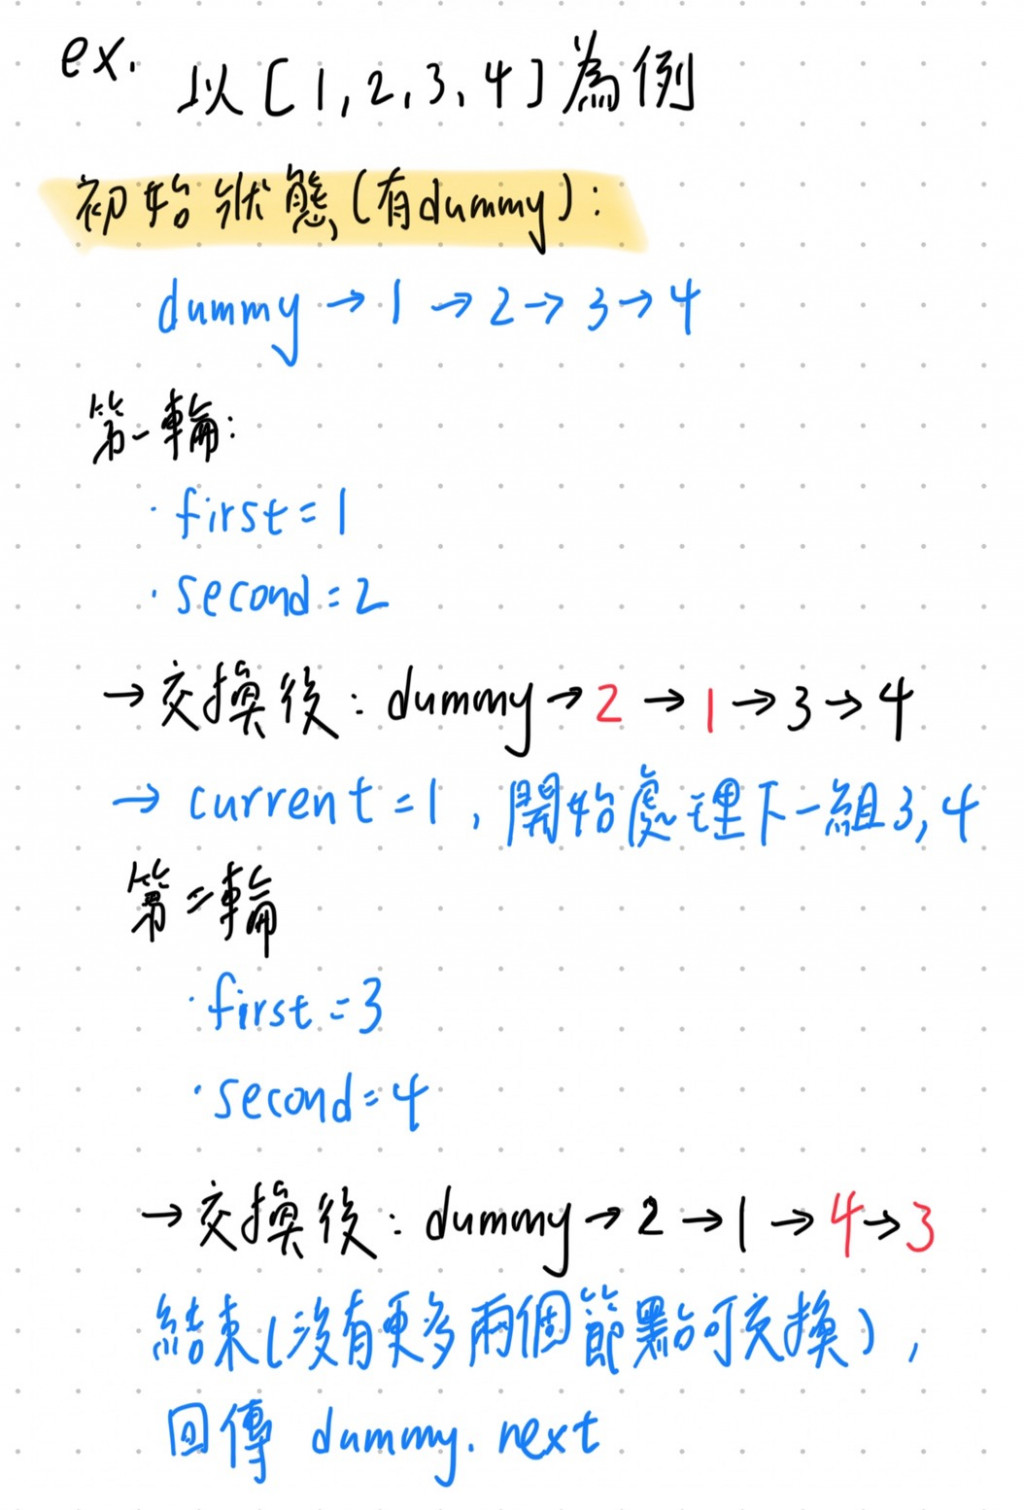 ex. 以[1,2,3,4]為例
初始狀態(有dummy):
dummy→1→2→3→4
第一輪:
·first=1
·second=2
→交換後:dummy→2→1→3→4
→current=1,開始處理下一組3,4
第二輪
·first=3
·second=4
→交換後:dummy→2→1→4→3
結束(沒有更多兩個節點可交換),
回傳 dummy.next